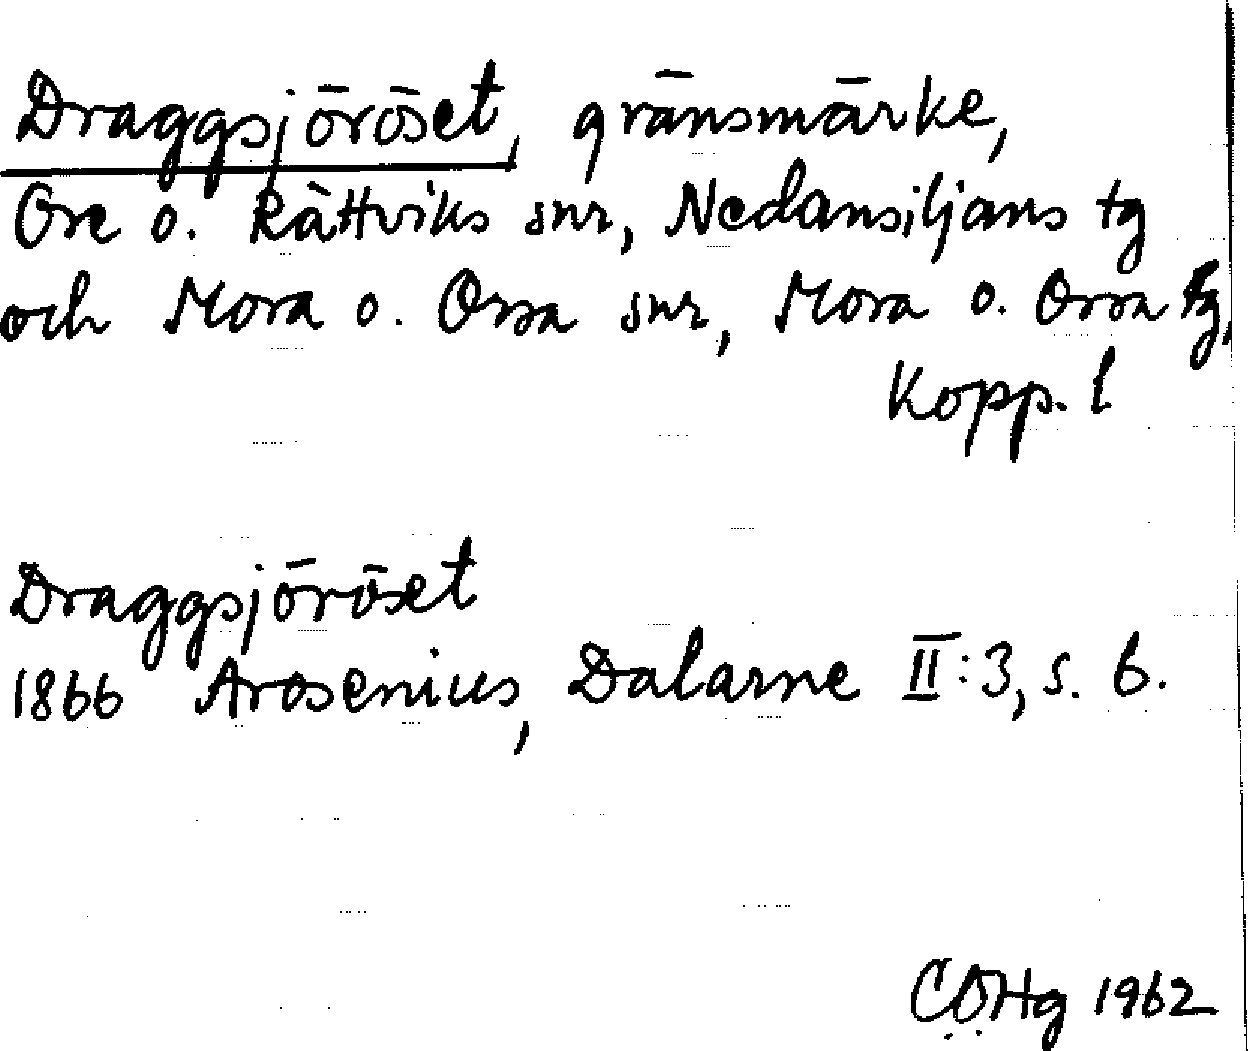 Draggsjöröset, gränsmärke,
Ore o. Rättviks snr, Nedansiljans tg
och Mora o. Orsa snr, Mora o. Orsa tg,
Kopp. l
Draggsjöröset
1866 Arosenius, Dalarne II:3, s. 6.
COHg 1962